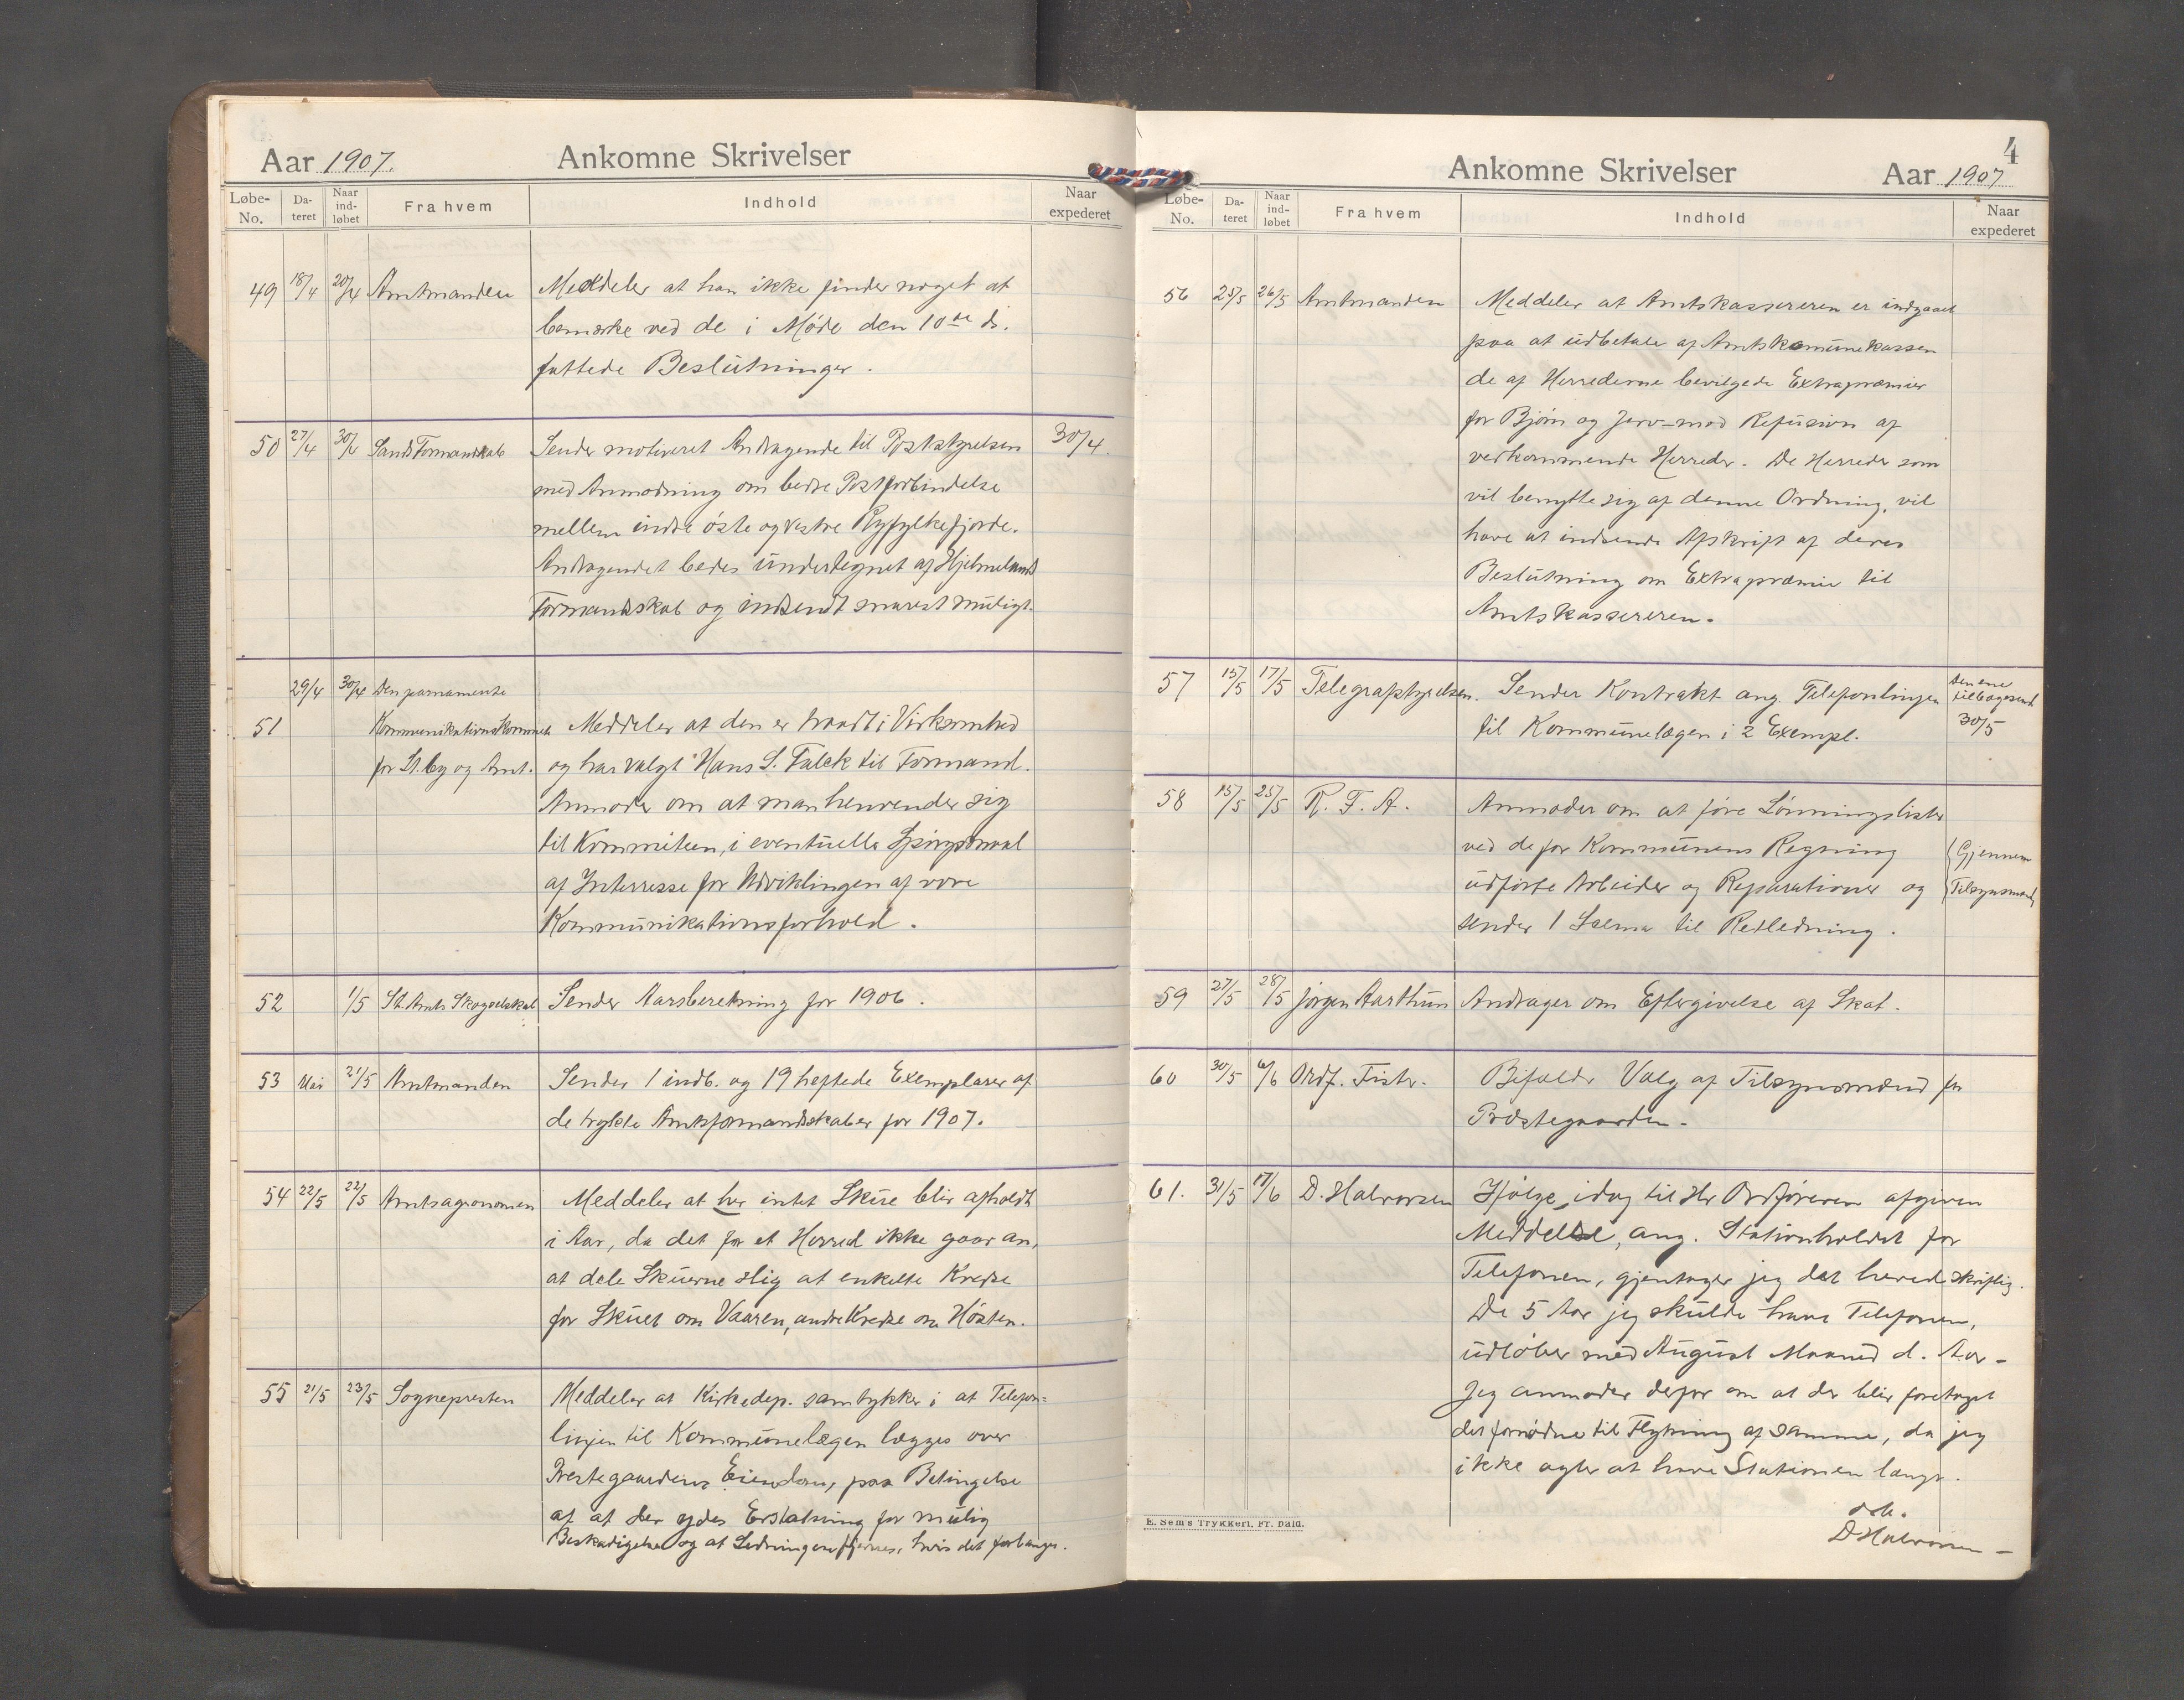 Aar 1907. Ankomne Skrivelser
Løbe-No. Da-teret Naar ind-løbet Fra hvem Indhold Naar expederet
49 18/4 20/4 Amtmanden Meddeler at han ikke finder noget at
bemærke ved de i Møde den 10de ds.
fattede Beslutninger.
50 27/4 30/4 Sands Formandskab Sender motiveret Andragende til Poststyrelsen 30/4.
med Anmodning om bedre Postforbindelse
mellem indre østre og vestre Ryfylkefjorde.
Andragendet bedes undertegnet af Hjelmelands
Formandskab og indsendt snarest muligt.
29/4 30/4 Den parnamente
51 Kommunikationskommité Meddeler at den er traadt i Virksomhed
for St. by og Amt. og har valgt Hans S. Falck til Formand.
Anmoder om at man henvender sig
til Kommiteen, i eventuelle Spørgsmaal
af Interresse for Udviklingen af vore
Kommunikationsforhold.
52 1/5 St. Amts Skogselskab Sender Aarsberetning for 1906.
53 Mai 21/5 Amtmanden Sender 1 indb. og 19 heftede Exemplarer af
de trykte Amtsformandskaber for 1907.
54 22/5 22/5 Amtsagronomen Meddeler at her intet Skue blir afholdt
i Aar, da det for et Herred ikke gaar an,
at dele Skuerne slig at enkelte Kredse
for Skuet om Vaaren, andre Kredse om Høsten.
55 21/5 23/5 Sognepresten Meddeler at Kirkedep. samtykker i at Telefon=
linjen til Kommunelægen lægges over
Prestegaardens Eiendom, paa Betingelse
af at der ydes Erstatning for mulig
Beskadigelse og at Ledningen fjernes, hvis det forlanges.
4
Ankomne Skrivelser Aar 1907
Løbe-No. Da-teret Naar ind-løbet Fra hvem Indhold Naar expederet
56 25/5 26/5 Amtmanden Meddeler at Amtskassereren er indgaaet
paa at udbetale af Amtskomunekassen
de af Herrederne bevilgede Extrapræmier
for Bjørn og Jerv mod Refusion af
vedkommende Herreder. De Herreder som
vil benytte sig af denne Ordning, vil
have at indsende Afskrift af deres
Beslutning om Extrapræmie til
Amtskassereren.
57 15/5 17/5 Telegrafstyrelsen. Sender Kontrakt ang. Telefonlinjen Den ene tilbagesendt
til Kommunelægen i 2 Exempl. 30/5
58 15/5 25/5 R. F. A. Anmoder om at føre Lønningslister
ved de for Kommunens Regning Gjennem
udførte Arbeider og Reparationer og Tilsynsmand
sender 1 Scema til Retledning.
59 27/5 28/5 Jørgen Aarthun Andrager om Eftergivelse af Skat.
60 30/5 6/6 Ordf. Fister. Bifalder Valg af Tilsynsmænd for
Præstegaarden.
61. 31/5 17/6 D. Halvorsen Ifølge idag til Hr Ordføreren afgiven
Meddelse, ang. Stationholdet for
Telefonen, gjentager jeg det herved skriftlig.
De 5 Aar jeg skulde have Telefonen,
udløber med August Maaned d. Aar.
Jeg anmoder derfor om at der blir foretaget
det fornødne til Flytning af samme, da jeg
ikke agter at have Stationen længr.
D Halvorsen
E. Sem's Trykkeri, Fr. hald.